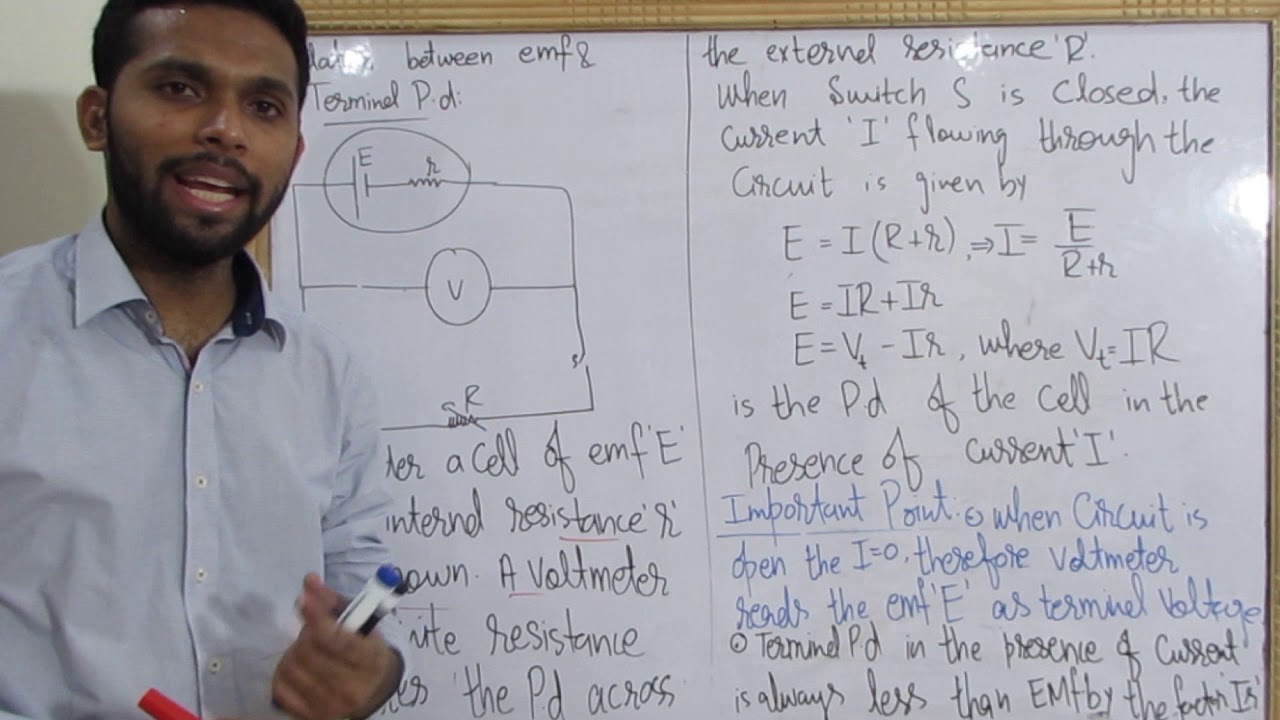 between emf &
Terminal P.d:
E
r
V
S
R
a cell of emf 'E'
resistance 'r'
A Voltmeter
resistance
the P.d across
the external resistance 'R'.
When Switch S is Closed, the
current 'I' flowing through the
Circuit is given by
E = I (R+r), ⇒ I = E / R+r
E = IR + Ir
E = Vt - Ir, where Vt = IR
is the P.d of the Cell in the
Presence of current 'I'.
Important Point: ⊙ when Circuit is
open the I=0, therefore voltmeter
reads the emf 'E' as terminal Voltage
⊙ Terminal P.d in the presence of Current
is always less than EMF by the factor 'Ir'